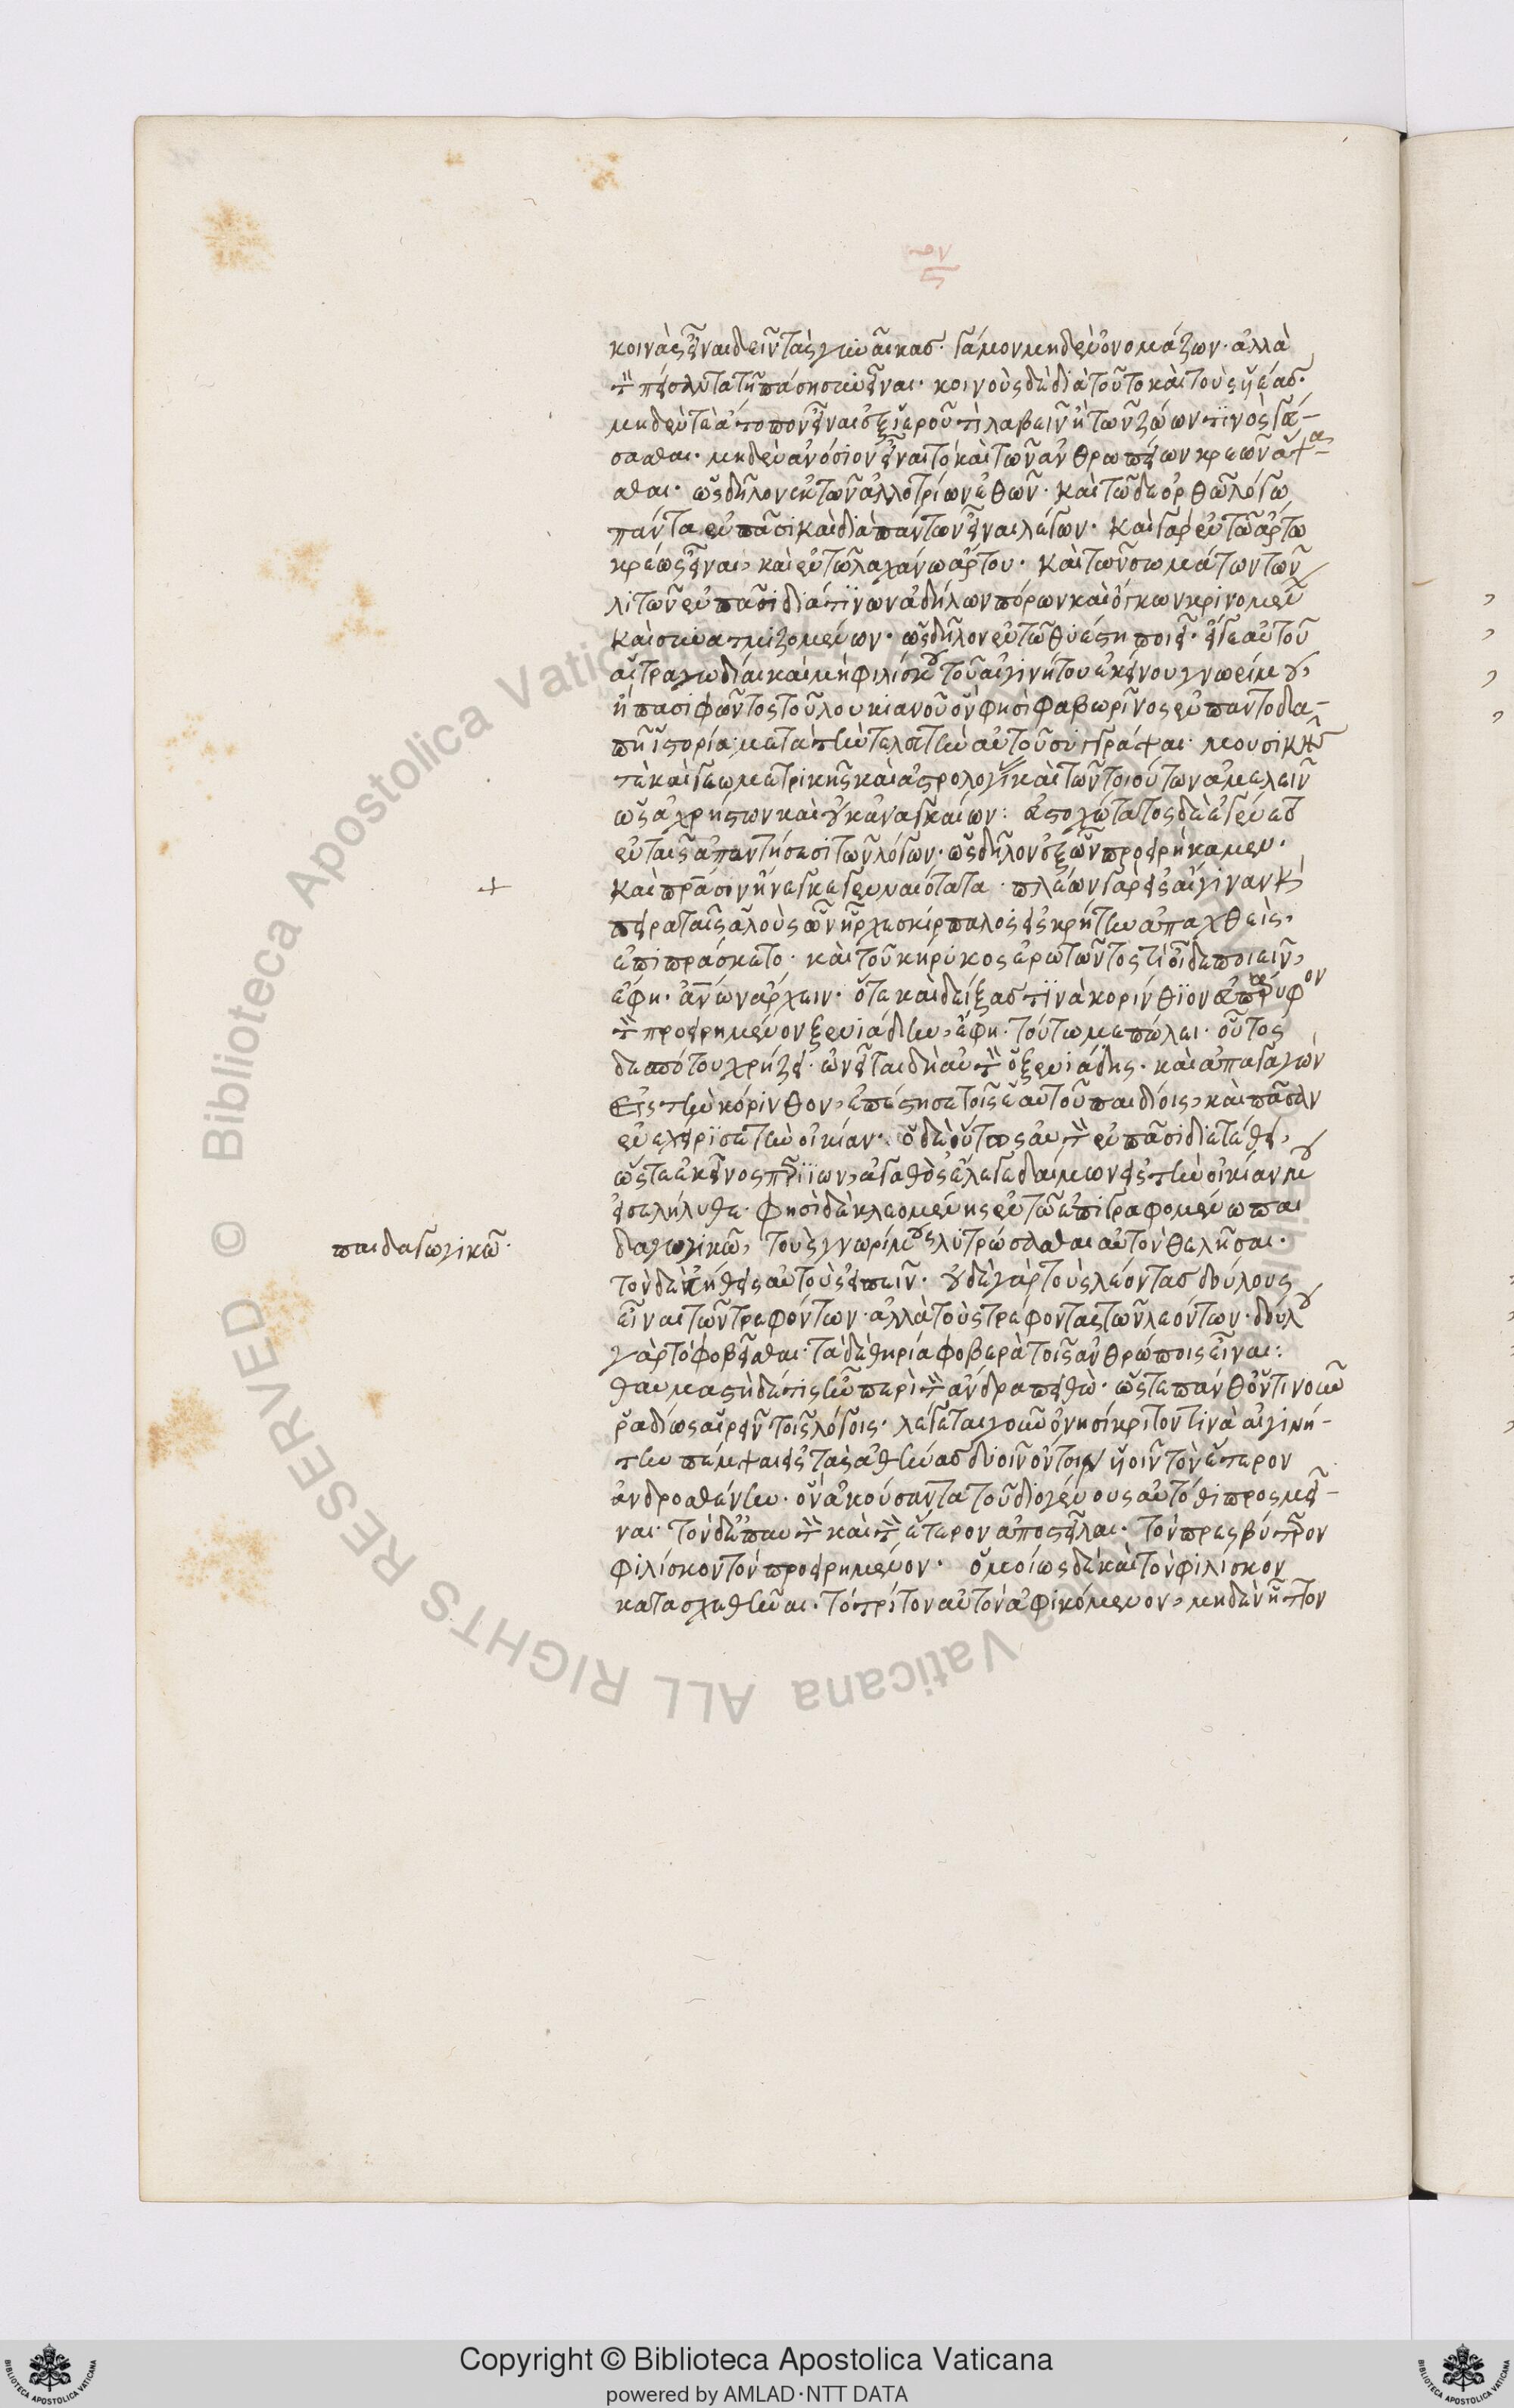 κοινὰς εἶναι δεῖν τὰς γυναῖκας· γάμον μηδὲν ὀνομάζων· ἀλλὰ
εἶναι· κοινοὺς δὲ διὰ τοῦτο καὶ τοὺς υἱέας·
μηδέν τε ἄτοπον εἶναι ἐξ ἱεροῦ τι λαβεῖν ἢ τῶν ζώων τινὸς γεύ-
σασθαι· μηδὲν ἀνόσιον εἶναι τὸ καὶ τῶν ἀνθρωπείων κρεῶν ἅψα-
σθαι· ὡς δῆλον ἐκ τῶν ἀλλοτρίων ἐθῶν· καὶ τῶδε ὀρθῶ λόγω
πάντα ἐν πᾶσι καὶ διὰ πάντων εἶναι λέγων· καὶ γὰρ ἐν τῶ ἄρτω
κρέως εἶναι, καὶ ἐν τῶ λαχάνω ἄρτου· καὶ τῶν σωμάτων τῶν
λιτῶν ἐν πᾶσι διά τινων ἀδήλων πόρων καὶ ὄγκων κρινομεν
καὶ συνατμιζομένων· ὡς δῆλον ἐν τῶ θυέστη ποιεῖ· εἴγε αὐτοῦ
αἱ τραγωδίαι καὶ μὴ φιλίσκου τοῦ αἰγινήτου ἐκείνου γνωρίμου,
ἢ πασιφῶντος τοῦ λουκιανοῦ ὅν φησὶ φαβωρῖνος ἐν παντοδα-
πῆ ἱστορία μετὰ τὴν τελευτὴν αὐτοῦ συγγράψαι· μουσικῆς
τὲ καὶ γεωμετρικῆς καὶ ἀστρολογί καὶ τῶν τοιούτων ἀμελεῖν
ὡς ἀχρήστων καὶ οὐκ ἀναγκαίων: εὐστοχώτατος δὲ ἐγένετ
ἐν ταῖς ἀπαντήσεσι τῶν λόγων· ὡς δῆλον ἐξ ὧν προειρήκαμεν·
καὶ πρᾶσιν ἤνεγκε γενναιότατα· πλέων γὰρ εἰς αἴγιναν κ
πειραταῖς ἁλοὺς ὧν ἦρχε σκίρπαλος εἰς κρήτην ἀπαχθεὶς,
ἐπιπράσκετο· καὶ τοῦ κήρυκος ἐρωτῶντος τί οἶδε ποιεῖν,
ἔφη· ἀνων ἄρχειν· ὅτε καὶ δείξας τινὰ κορίνθιον
τὸν προειρημένον ξενιάδην, ἔφη· τούτω με πώλει· οὗτος
δεσπότου χρήζει· ὠνεῖται δὴ αὐτὸν ὁ ξενιάδης· καὶ ἀπαγαγὼν
εἰς τὴν κόρινθον, ἐπέστησε τοῖς ἑαυτοῦ παιδίοις, καὶ πᾶσαν
ἐνεχείρισε τὴν οἰκίαν· ὁ δὲ οὕτως αὐτὴν ἐν πᾶσι διετέθει,
ὥστε ἐκεῖνος περιϊὼν, ἀγαθὸς ἔλεγε δαίμων εἰς τὴν οἰκίαν μου
εἰσελήλυθε· φησὶ δὲ κλεομένης ἐν τῶ ἐπιγραφομένω παι
δαγωγικῶ, τοὺς γνωρίμους λυτρώσασθαι αὐτὸν θελῆσαι·
τὸν δὲ εὐήθεις αὐτοὺς εἰπεῖν· οὐδὲ γὰρ τοὺς λέοντας δούλους
εἶναι τῶν τρεφόντων· ἀλλὰ τοὺς τρέφοντας τῶν λεόντων· δούλου
γὰρ τὸ φοβεῖσθαι· τὰ δὲ θηρία φοβερὰ τοῖς ἀνθρώποις εἶναι:
θαυμαστὴ δέ τις ἦν περὶ τὸν ἄνδρα πειθώ· ὥστε πάνθ᾽ ὅντινουν
ῥαδίως αἱρεῖν τοῖς λόγοις· λέγεται γοῦν ὀνησίκριτόν τινα αἰγινή-
την πέμψαι εἰς τὰς ἀθήνας δυοῖν ὄντοιν υἱοῖν τὸν ἕτερον
ἀνδροσθένην· ὃν ἀκούσαντα τοῦ διογένους αὐτόθι προσμεῖ-
ναι· τὸν δ᾽ ἐπ᾽ αὐτὸν καὶ τὸν ἕτερον ἀποστεῖλαι· τὸν πρεσβύτερον
φιλίσκον τὸν προειρημένον· ὁμοίως δὲ καὶ τὸν φιλίσκον
κατασχεθῆναι· τὸ τρίτον αὐτὸν ἀφικόμενον, μηδὲν ἧττον
παιδαγωγικῶ·
© Biblioteca Apostolica Vaticana ALL RIGHTS RESERVED
Copyright © Biblioteca Apostolica Vaticana
powered by AMLAD·NTT DATA
BIBLIOTECA APOSTOLICA VATICANA
BIBLIOTECA APOSTOLICA VATICANA